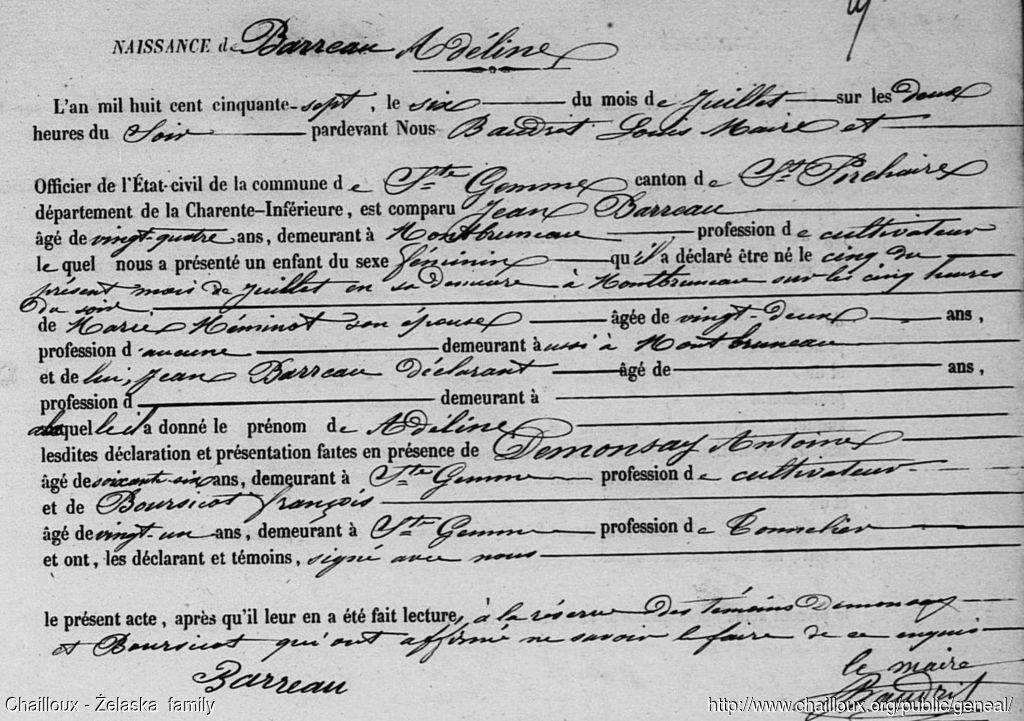 NAISSANCE de Barreau Adéline
L'an mil huit cent cinquante-sept, le six du mois de Juillet sur les deux
heures du Soir pardevant Nous Baudrit Louis Maire et
Officier de l'État-civil de la commune de Ste Gemme canton de St Porchaire
département de la Charente-Inférieure, est comparu Jean Barreau
âgé de vingt-quatre ans, demeurant à Montbruneau profession de cultivateur
le quel nous a présenté un enfant du sexe féminin qu'il a déclaré être né le cinq du
présent mois de Juillet en sa demeure à Montbruneau sur les cinq heures
du soir
de Marie Méminot son épouse âgée de vingt-deux ans,
profession d'aucune demeurant aussi à Montbruneau
et de lui, Jean Barreau déclarant âgé de ans,
profession d demeurant à
auquel il a donné le prénom de Adéline
lesdites déclaration et présentation faites en présence de Demonsay Antoine
âgé de soixante-six ans, demeurant à Ste Gemme profession de cultivateur
et de Boursicot françois
âgé de vingt-un ans, demeurant à Ste Gemme profession de Tonnelier
et ont, les déclarant et témoins, signé avec nous
le présent acte, après qu'il leur en a été fait lecture, à la réserve des témoins Demonsay
et Boursicot qui ont affirmé ne savoir le faire de ce enquis
Barreau
le maire
Baudrit
Chailloux - Żelaska family
http://www.chailloux.org/public/geneal/